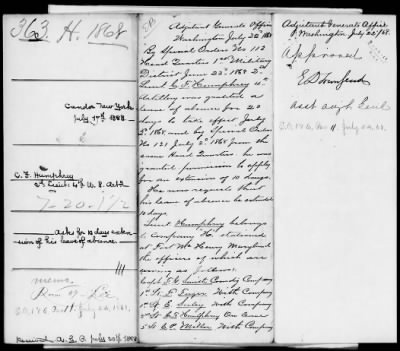 363. H. 1868
Candor New York
July 17th 1868.
C. F. Humphrey
2d Lieut. 4th U.S. Arty
7-20. 1 1/2
Asks for 10 days exten-
sion of his leave of absence.
Adjutant Generals Office
Washington July 22d 186
By Special Orders No 112
Head Quarters 1st Military
District June 23d 1868 2d
Lieut C. F. Humphrey 4th
Artillery was granted a
leave of absence for 20
days to take effect July
2d 1868 and by Special Order
No 121 July 2d 1868 from the
same Head Quarters he was
granted permission to apply
for an extension of 10 days.
He now requests that
his leave of absence be extended
10 days
Lieut Humphrey belongs
to Company H. stationed
at Fort McHenry Maryland
the officers of which are
serving as follows:
Capt. Smith Comdg Company
1st Lt. With Company
With Company
2d Lt C. F. Humphrey On leave
2d Lt Miller With Company
Adjutant Generals Office
Washington July 22/68.
Approved
E D Townsend
Asst Adjt Genl